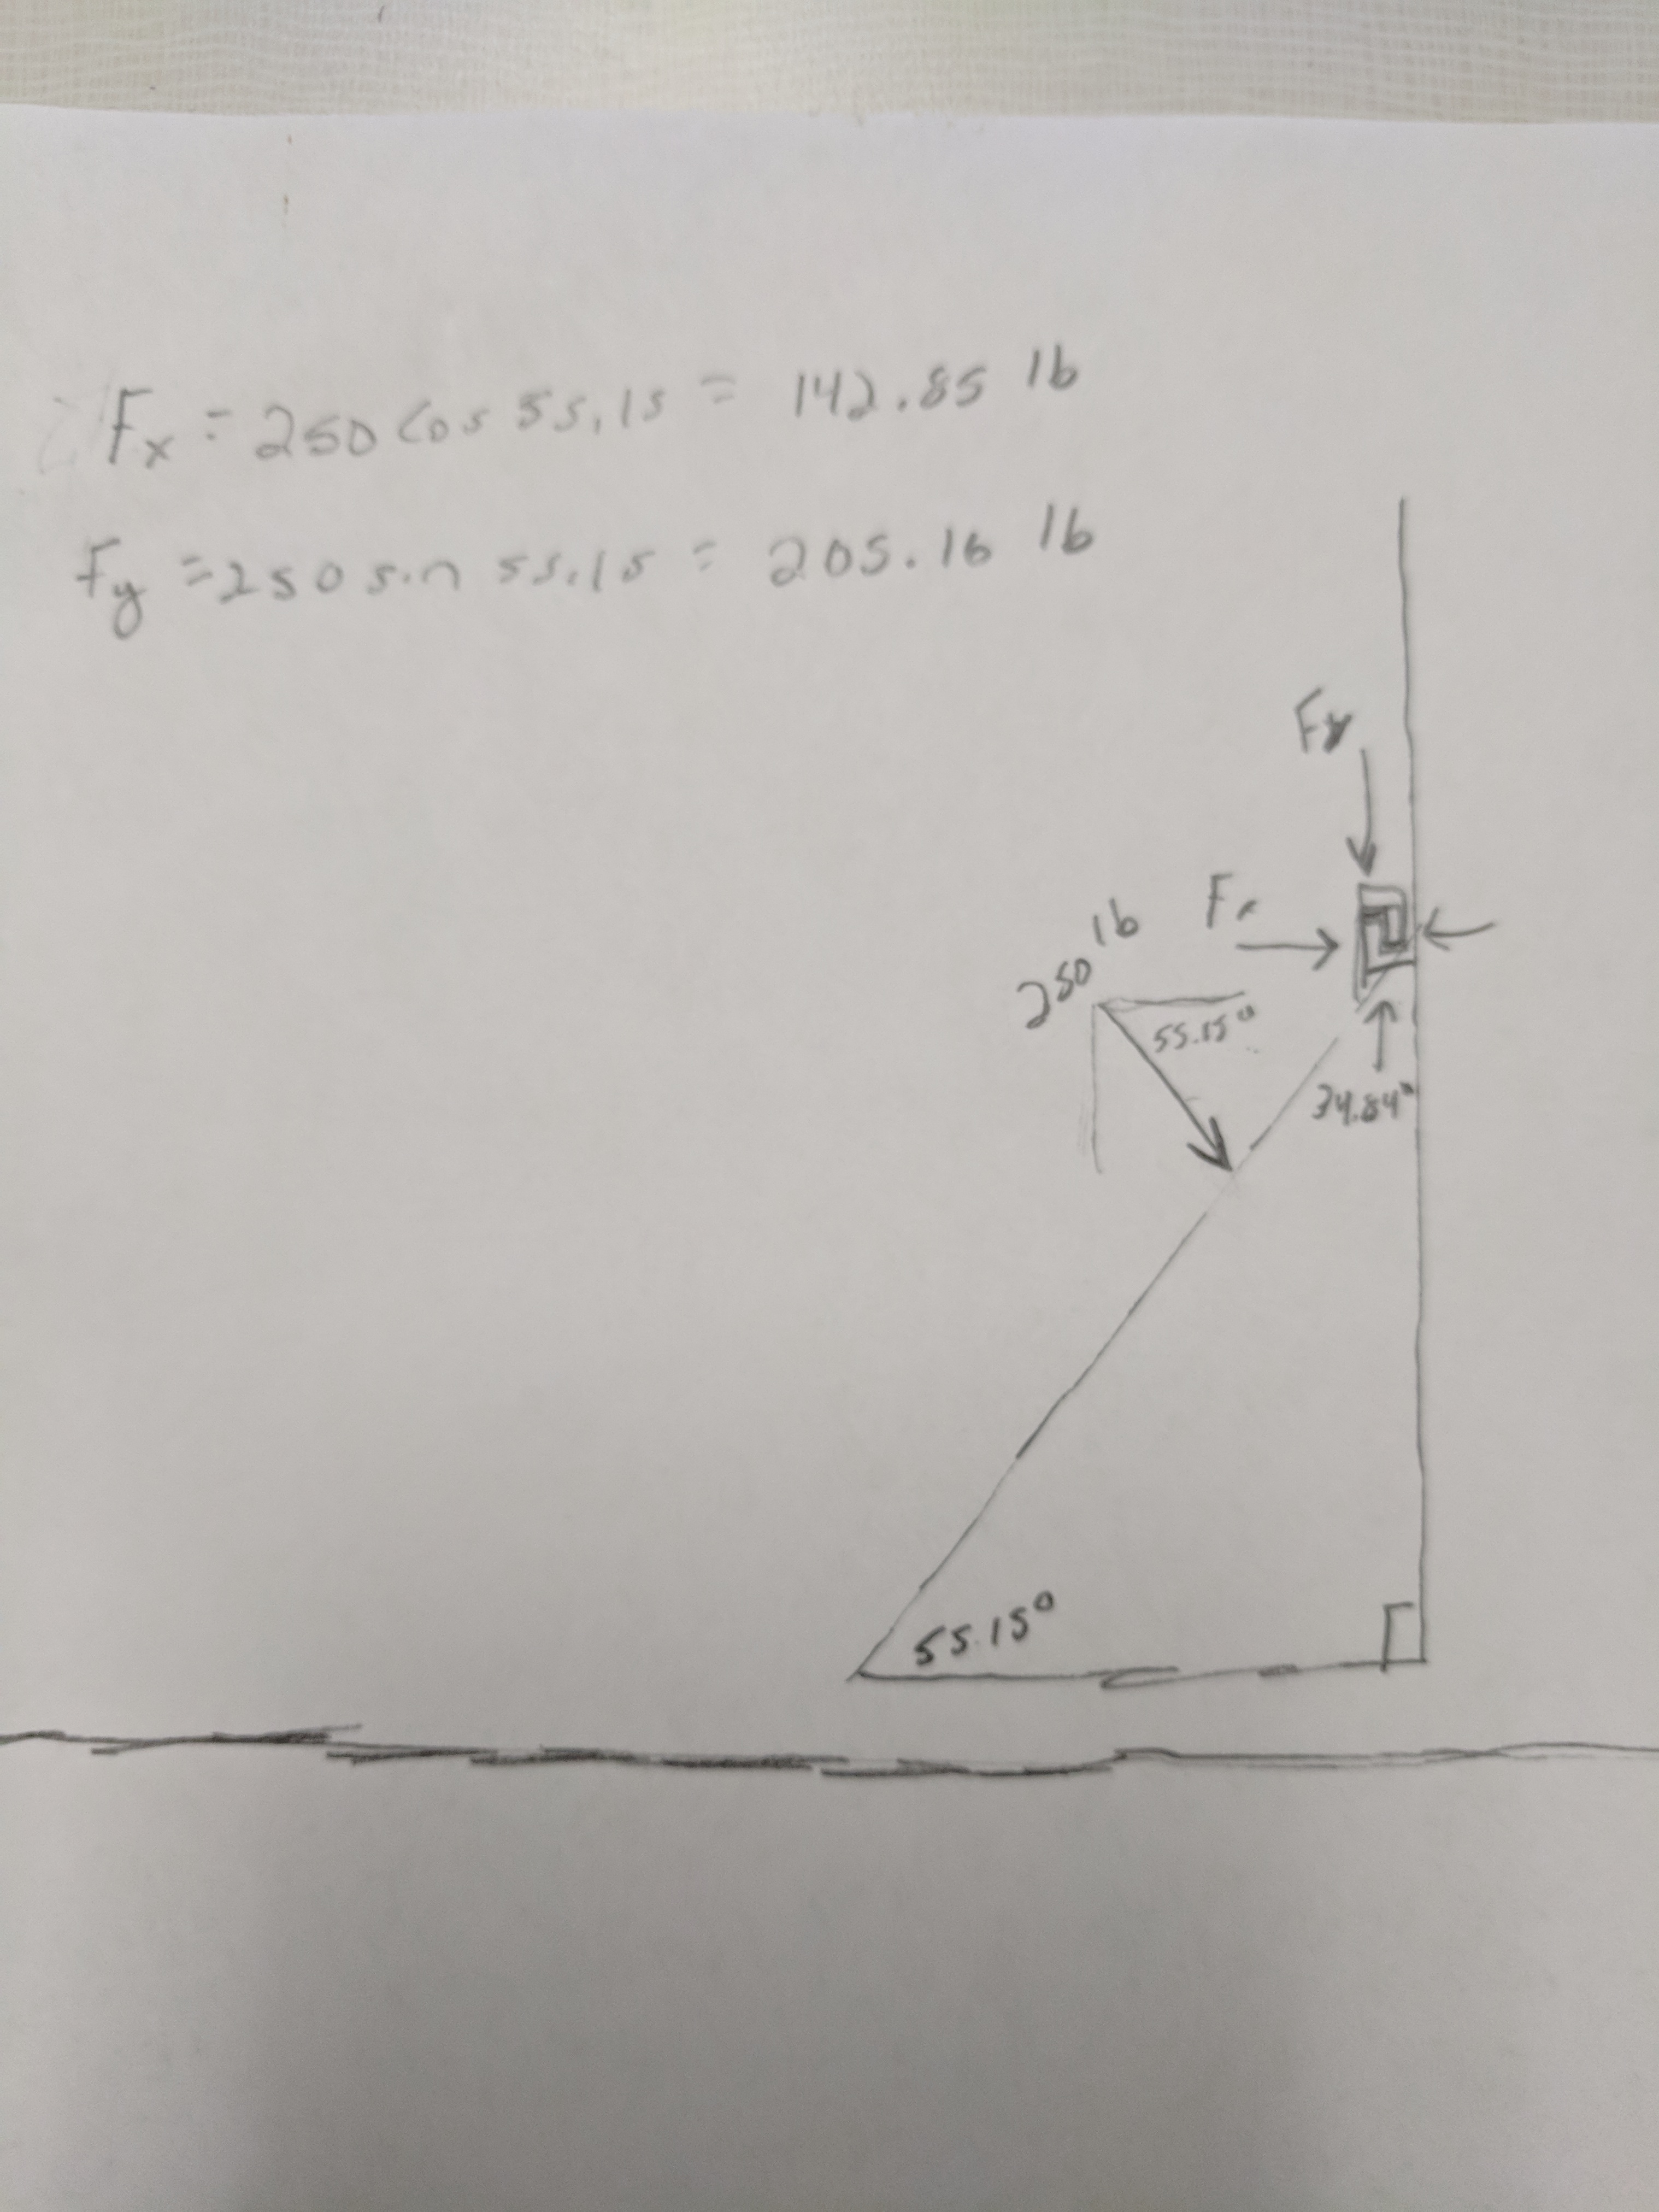 Fx = 250 cos 55.15 = 142.85 lb
Fy = 250 sin 55.15 = 205.16 lb
Fy
Fx
250 lb
55.15°
34.84°
55.15°